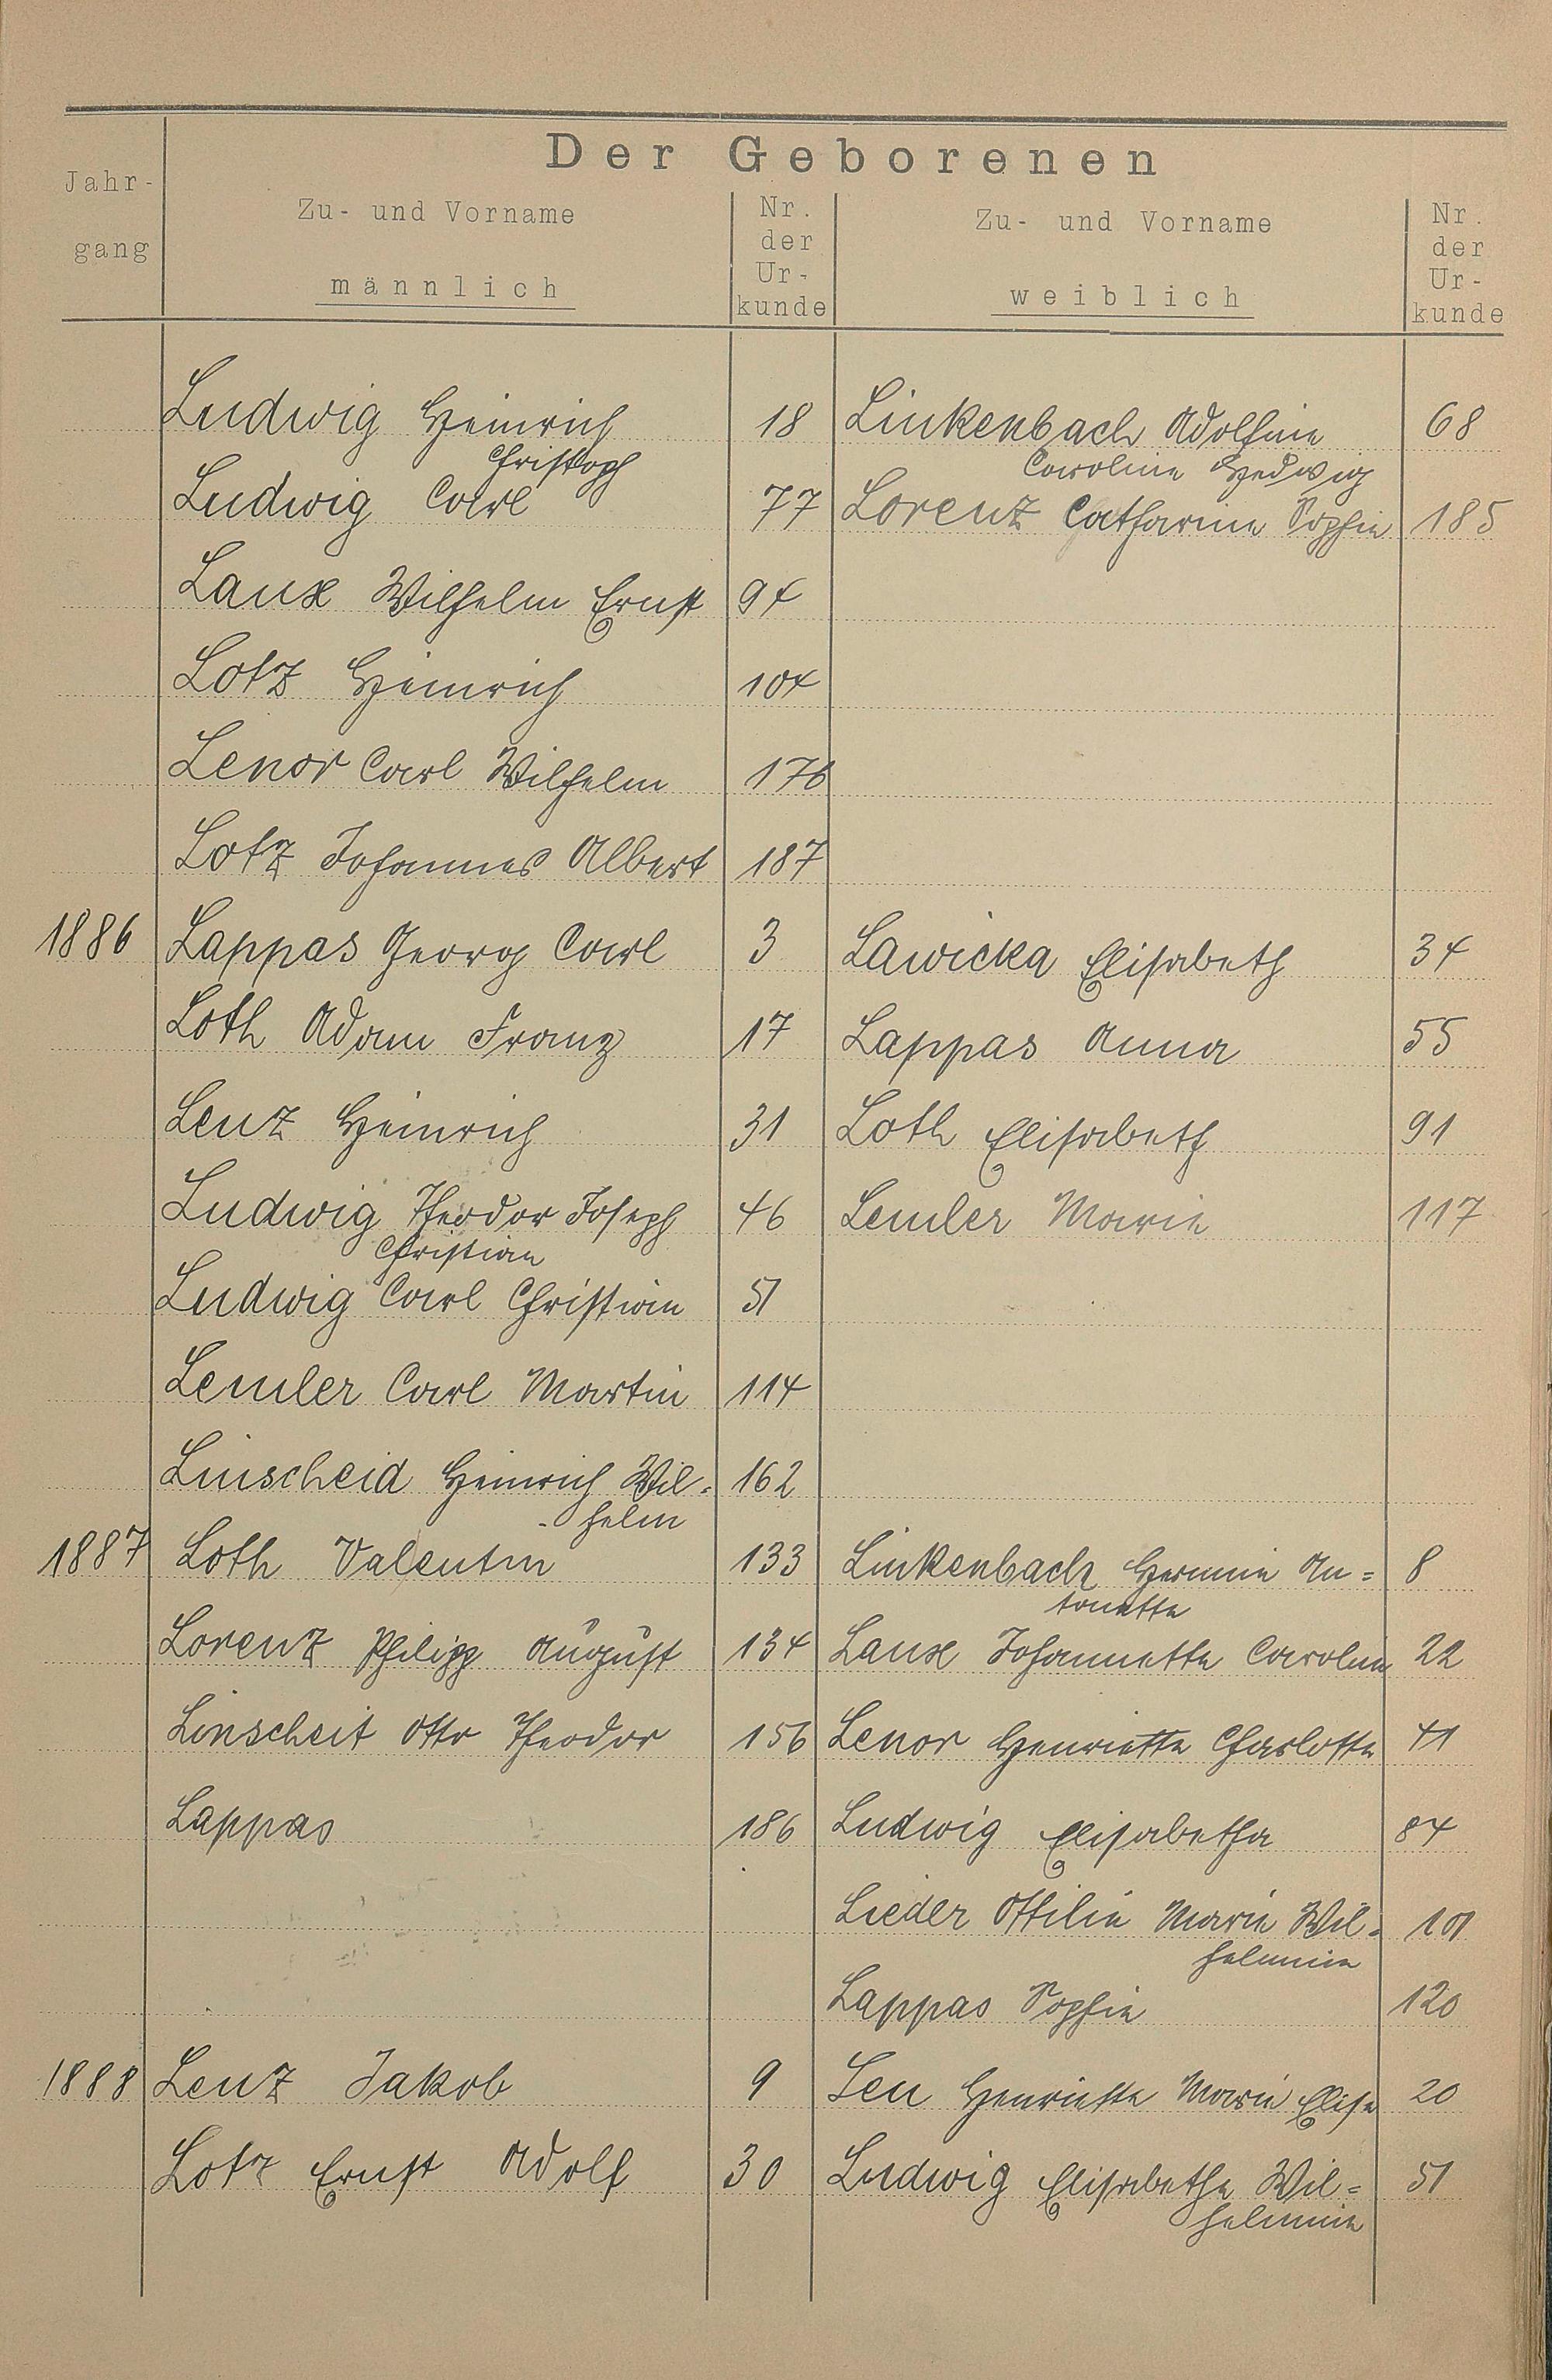 Der Geborenen
Jahr-
gang
Zu- und Vorname
männlich
Nr.
der
Ur-
kunde
Zu- und Vorname
weiblich
Nr.
der
Ur-
kunde
Ludwig Heinrich 18 Linkenbach Adolfine 68
Christoph Caroline Hedwig
Ludwig Carl 77 Lorenz Catharine Sophie 185
Laux Wilhelm Ernst 94
Lotz Heinrich 104
Lenor Carl Wilhelm 176
Lotz Johannes Albert 187
1886 Lappas Georg Carl 3 Lawicka Elisabeth 34
Loth Adam Franz 17 Lappas Anna 55
Lenz Heinrich 31 Loth Elisabeth 91
Ludwig Theodor Joseph 46 Lemler Marie 117
Christian
Ludwig Carl Christian 51
Lemler Carl Martin 114
Linscheid Heinrich Wil- 162
-helm
1887 Loth Valentin 133 Linkenbach Hermine An= 8
tonette
Lorenz Philipp August 134 Laux Johannette Caroline 22
Linscheit Otto Theodor 156 Lenor Henriette Charlotte 41
Lappas 186 Ludwig Elisabetha 84
Lieder Ottilie Marie Wil= 101
helmine
Lappas Sophie 120
1888 Lenz Jakob 9 Leu Henriette Marie Elise 20
Lotz Ernst Adolf 30 Ludwig Elisabethe Wil= 51
helmine